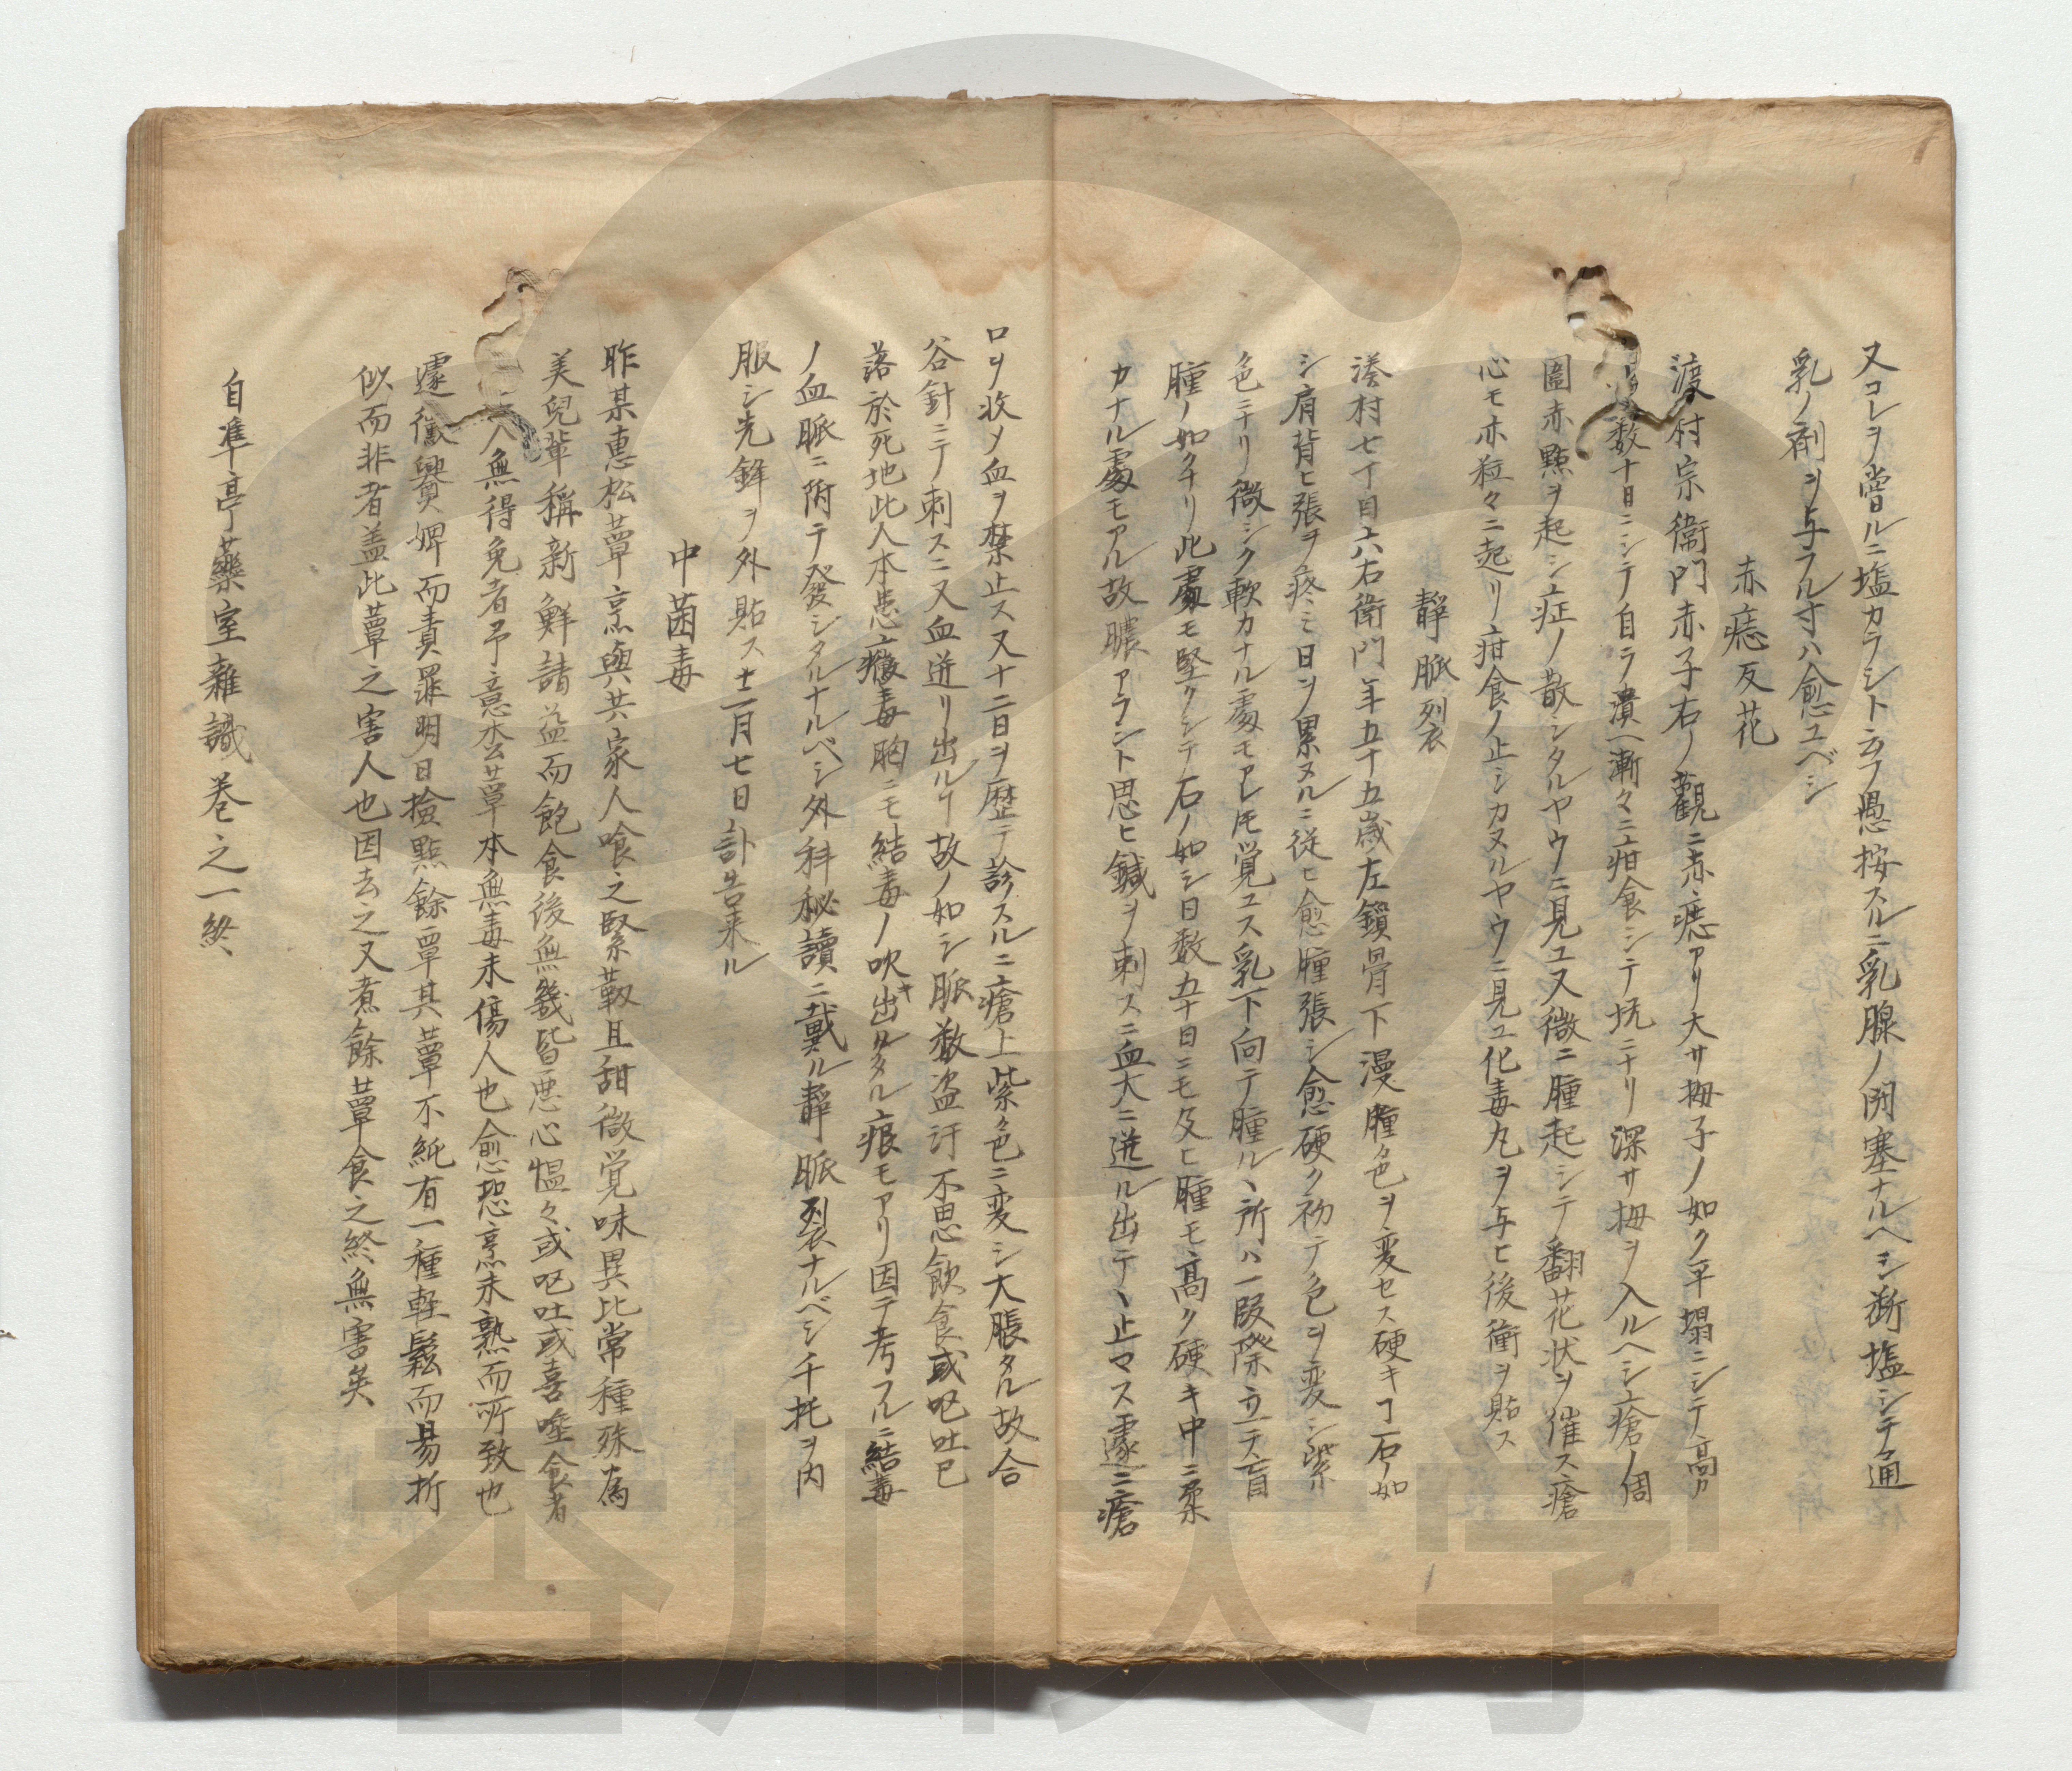 又コレヲ嘗ルニ塩カラシト云フ愚按スルニ乳腺ノ閉塞ナルヘシ断塩シテ通
乳ノ剤ヲ与フル寸ハ愈ユベシ
赤痣反花
渡村宗衛門赤子右ノ觀ニ赤痣アリ大サ拇子ノ如ク平塌ニシテ高カ
数十日ニシテ自ラ潰一漸々ニ疳食シテ坑ニナリ深サ拇ヲ入ルヘシ瘡ノ周
圍赤點ヲ起シ㽲症ノ散シタルヤウニ見ユ又微ニ腫起シテ翻花状ヲ催ス瘡
心モ亦粒々ニ起リ疳食ノ止シカヌルヤウニ見ユ化毒丸ヲ与ヒ後衝ヲ貼ス
靜脈裂
湊村七丁目六右衛門年五十五歳左鎖骨下漫腫色ヲ変セス硬キヿ石ノ如
シ肩背ヒ張ヲ疼ミ日ヲ累ヌルニ従ヒ愈腫張シ愈硬ク初テ色ヲ変シ紫
色ニナリ微シク軟カナル處モアレ𪜈覚ユス乳下向テ腫ルヽ所ハ一段際立テ盲
腫ノ如クナリ此處モ堅クシテ石ノ如シ日数五十日ニモ及ヒ腫モ高ク硬キ中ニ柔
カナル處モアル故膿アラント思ヒ鍼ヲ刺スニ血大ニ迸ル出テヽ止マス遽ニ瘡
口ヲ收メ血ヲ禁止ス又十二日ヲ歴テ診スルニ瘡上紫色ニ変シ大脹タル故合
谷針ニテ刺スニ又血迸リ出ルヿ故ノ如シ脈数盗汗不思飲食或吃吐已
落於死地此人本患黴毒胸ニモ結毒ノ吹キ出タル痕モアリ因テ考フルニ結毒
ノ血脈ニ附テ發シタルナルベシ外科秘讀ニ載ル靜脈裂ナルベシ千托ヲ内
服シ先鋒ヲ外貼ス十一月七日訃告来ル
中菌毒
昨某恵松蕈烹與共家人喰之緊靱且甜微覚味異比常種殊為
美兒輩稱新鮮請益而飽食後無幾皆悪心慍々或吃吐或喜唾食者
三人無得免者予意松蕈本無毒未傷人也愈恐烹未熟而所致也
遽徴爨婢而責罪明日撿點餘蕈其蕈不純有一種軽鬆而易折
似而非者盖此蕈之害人也因去之又煮餘蕈食之終無害矣
自準亭藥室雜識巻之一終